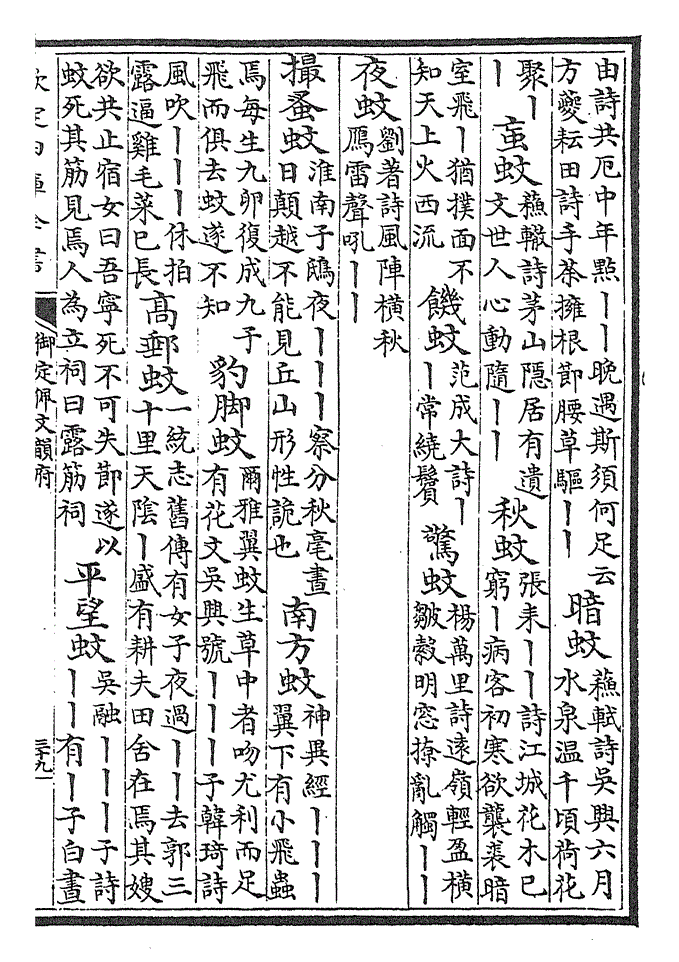 由詩共厄中年點丨丨晚遇斯須何足云
方夔耘田詩手荼擁根節腰草驅丨丨
暗蚊
蘇軾詩吳興六月
水泉温千頃荷花
聚丨
丨
䖟蚊
蘇轍詩茅山隱居有遺
文世人心動隨丨丨
秋蚊
張耒丨丨詩江城花木已
窮丨病客初寒欲襲裘暗
室飛丨猶撲面不
知天上火西流
饑蚊
范成大詩丨
丨常繞鬢
驚蚊
楊萬里詩遠嶺輕盈横
皺縠明窓撩亂觸丨丨
夜蚊
劉著詩風陣横秋
鴈雷聲吼丨丨
撮蚤蚊
淮南子鴟夜丨丨丨察分秋毫晝
日顛越不能見丘山形性詭也
南方蚊
神異經丨丨丨
翼下有小飛蟲
焉每生九卵復成九子
飛而俱去蚊遂不知
豹脚蚊
爾雅翼蚊生草中者吻尤利而足
有花文吳興號丨丨丨子韓琦詩
風吹丨丨丨休拍
露逼雞毛菜已長
高郵蚊
一統志舊傳有女子夜過丨丨去郭三
十里天陰丨盛有耕夫田舍在焉其嫂
欲共止宿女曰吾寧死不可失節遂以
蚊死其筋見焉人為立祠曰露筋祠
平望蚊
吳融丨丨丨子詩
丨丨有丨子白晝
欽定四庫全書
御定佩文韻府
三十九